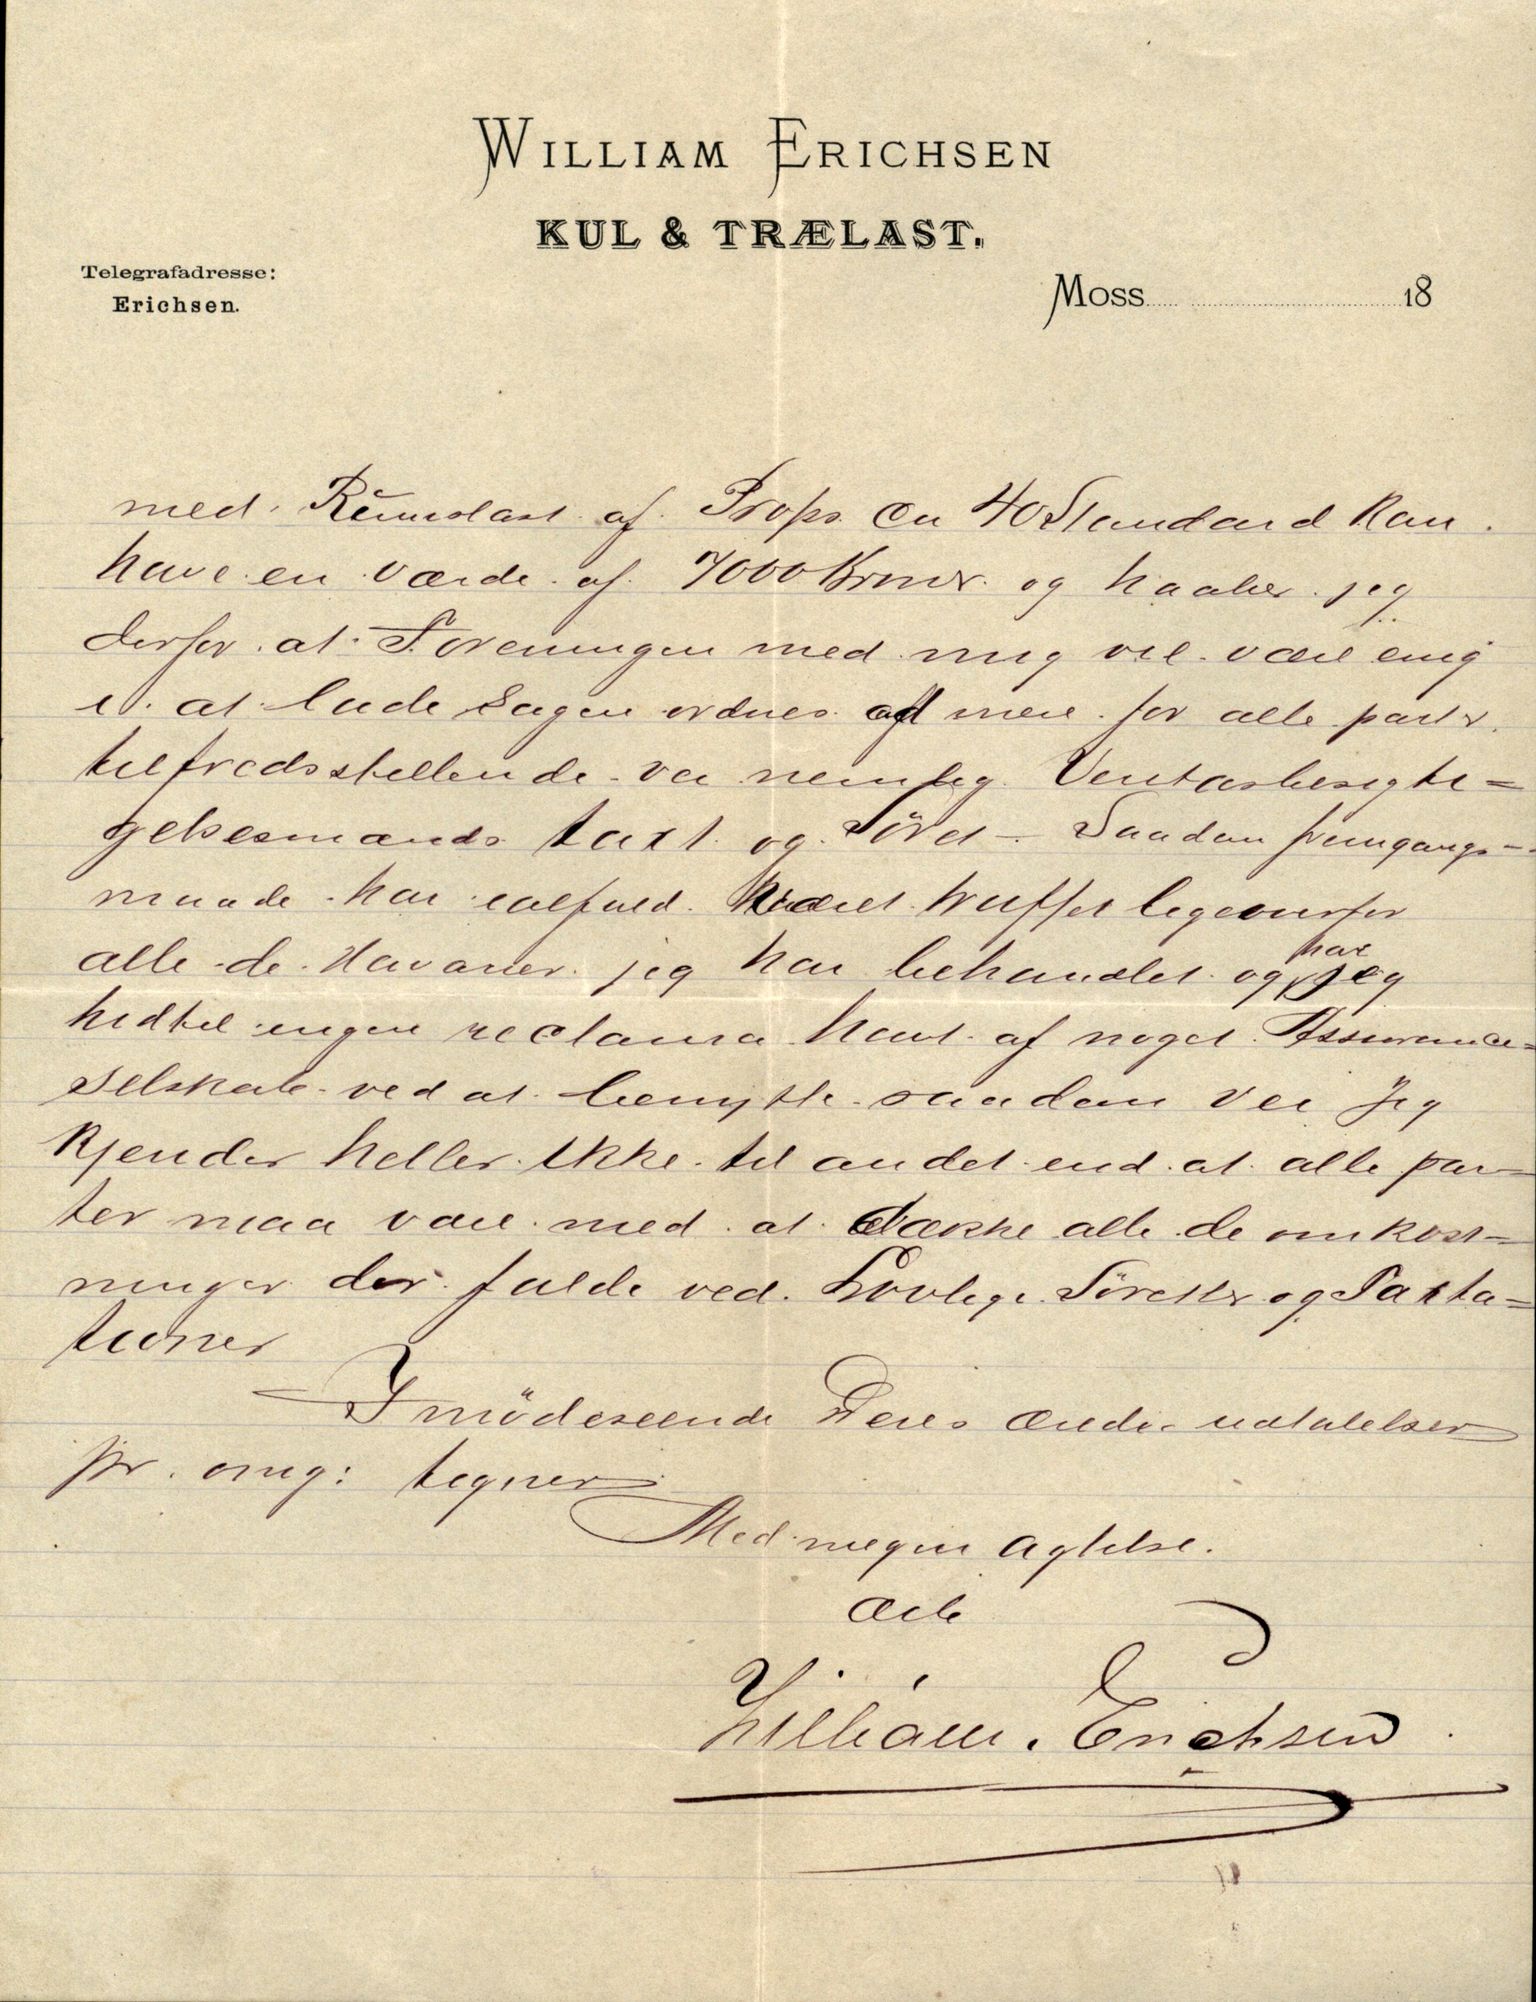 WILLIAM ERICHSEN
KUL & TRÆLAST.
Telegrafadresse:
Erichsen.
Moss 18
med Rumslast af Props ca 40 Standard kan
have en værdi af 7000 Kroner og haaber jeg
derfor at Foreningen med mig vil være enig
i at lade Sagen ordnes ad mere for alle parter
tilfredsstillende vei nemlig Veritasbesigti=
gelsesmænds taxt og Söret – Saadan fremgangs-
maade har ialfald været truffet ligeoverfor
alle de Havarier jeg har behandlet og har jeg
hidtil ingen reclama havt af noget Assurance=
selskab ved at benytte saadan vei Jeg
kjender heller ikke til andet end at alle par=
ter maa være med at dække alle de omkost=
ninger der falde ved Lovlige Söretter og Taxta=
tioner
Imödeseende Deres ærede udtalelser
pr. omg: tegner
Med megen agtelse.
ærb
William Erichsen